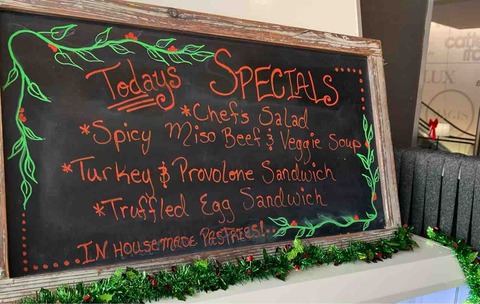 Todays SPECIALS
*Chefs Salad
*Spicy Miso Beef & Veggie Soup
*Turkey & Provolone Sandwich
*Truffled Egg Sandwich
IN HOUSEMADE PASTRIES!
LUX